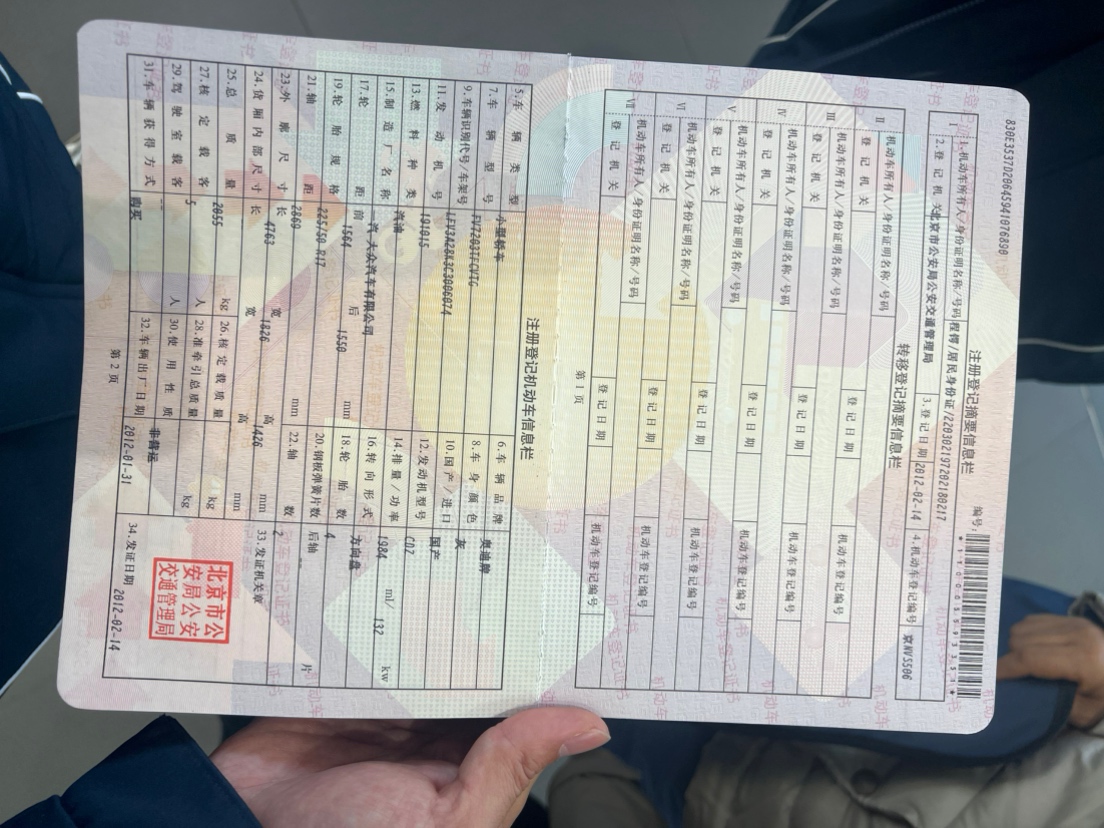 830E3537D20645941076890
注册登记摘要信息栏
编号:
Ⅰ 1.机动车所有人/身份证明名称/号码 程樗/居民身份证/220302197202180217
2.登记机关 北京市公安局公安交通管理局 3.登记日期 2012-02-14 4.机动车登记编号 京NV5S06
转移登记摘要信息栏
Ⅱ 机动车所有人/身份证明名称/号码
登记机关 登记日期 机动车登记编号
Ⅲ 机动车所有人/身份证明名称/号码
登记机关 登记日期 机动车登记编号
Ⅳ 机动车所有人/身份证明名称/号码
登记机关 登记日期 机动车登记编号
Ⅴ 机动车所有人/身份证明名称/号码
登记机关 登记日期 机动车登记编号
Ⅵ 机动车所有人/身份证明名称/号码
登记机关 登记日期 机动车登记编号
Ⅶ 机动车所有人/身份证明名称/号码
登记机关 登记日期 机动车登记编号
第1页
注册登记机动车信息栏
5.车辆类型 小型轿车 6.车辆品牌 奥迪牌
7.车辆型号 FV7203TFCVTG 8.车身颜色 灰
9.车辆识别代号/车架号 LFV3A28K3C3006074 10.国产/进口 国产
11.发动机号 191015 12.发动机型号 CDZ
13.燃料种类 汽油 14.排量/功率 1984 ml/ 132 kw
15.制造厂名称 一汽-大众汽车有限公司 16.转向形式 方向盘
17.轮距 前 1564 后 1550 mm 18.轮胎数 4
19.轮胎规格 225/50 R17 20.钢板弹簧片数 后轴 -- 片
21.轴距 2869 mm 22.轴数 2
23.外廓尺寸 长 4763 宽 1826 高 1426 mm 33.发证机关章
24.货厢内部尺寸 长 宽 高 mm
25.总质量 2055 kg 26.核定载质量 kg
27.核定载客 5 人 28.准牵引总质量 kg
29.驾驶室载客 -- 人 30.使用性质 非营运
31.车辆获得方式 购买 32.车辆出厂日期 2012-01-31 34.发证日期 2012-02-14
北京市公
安局公安
交通管理局
第2页